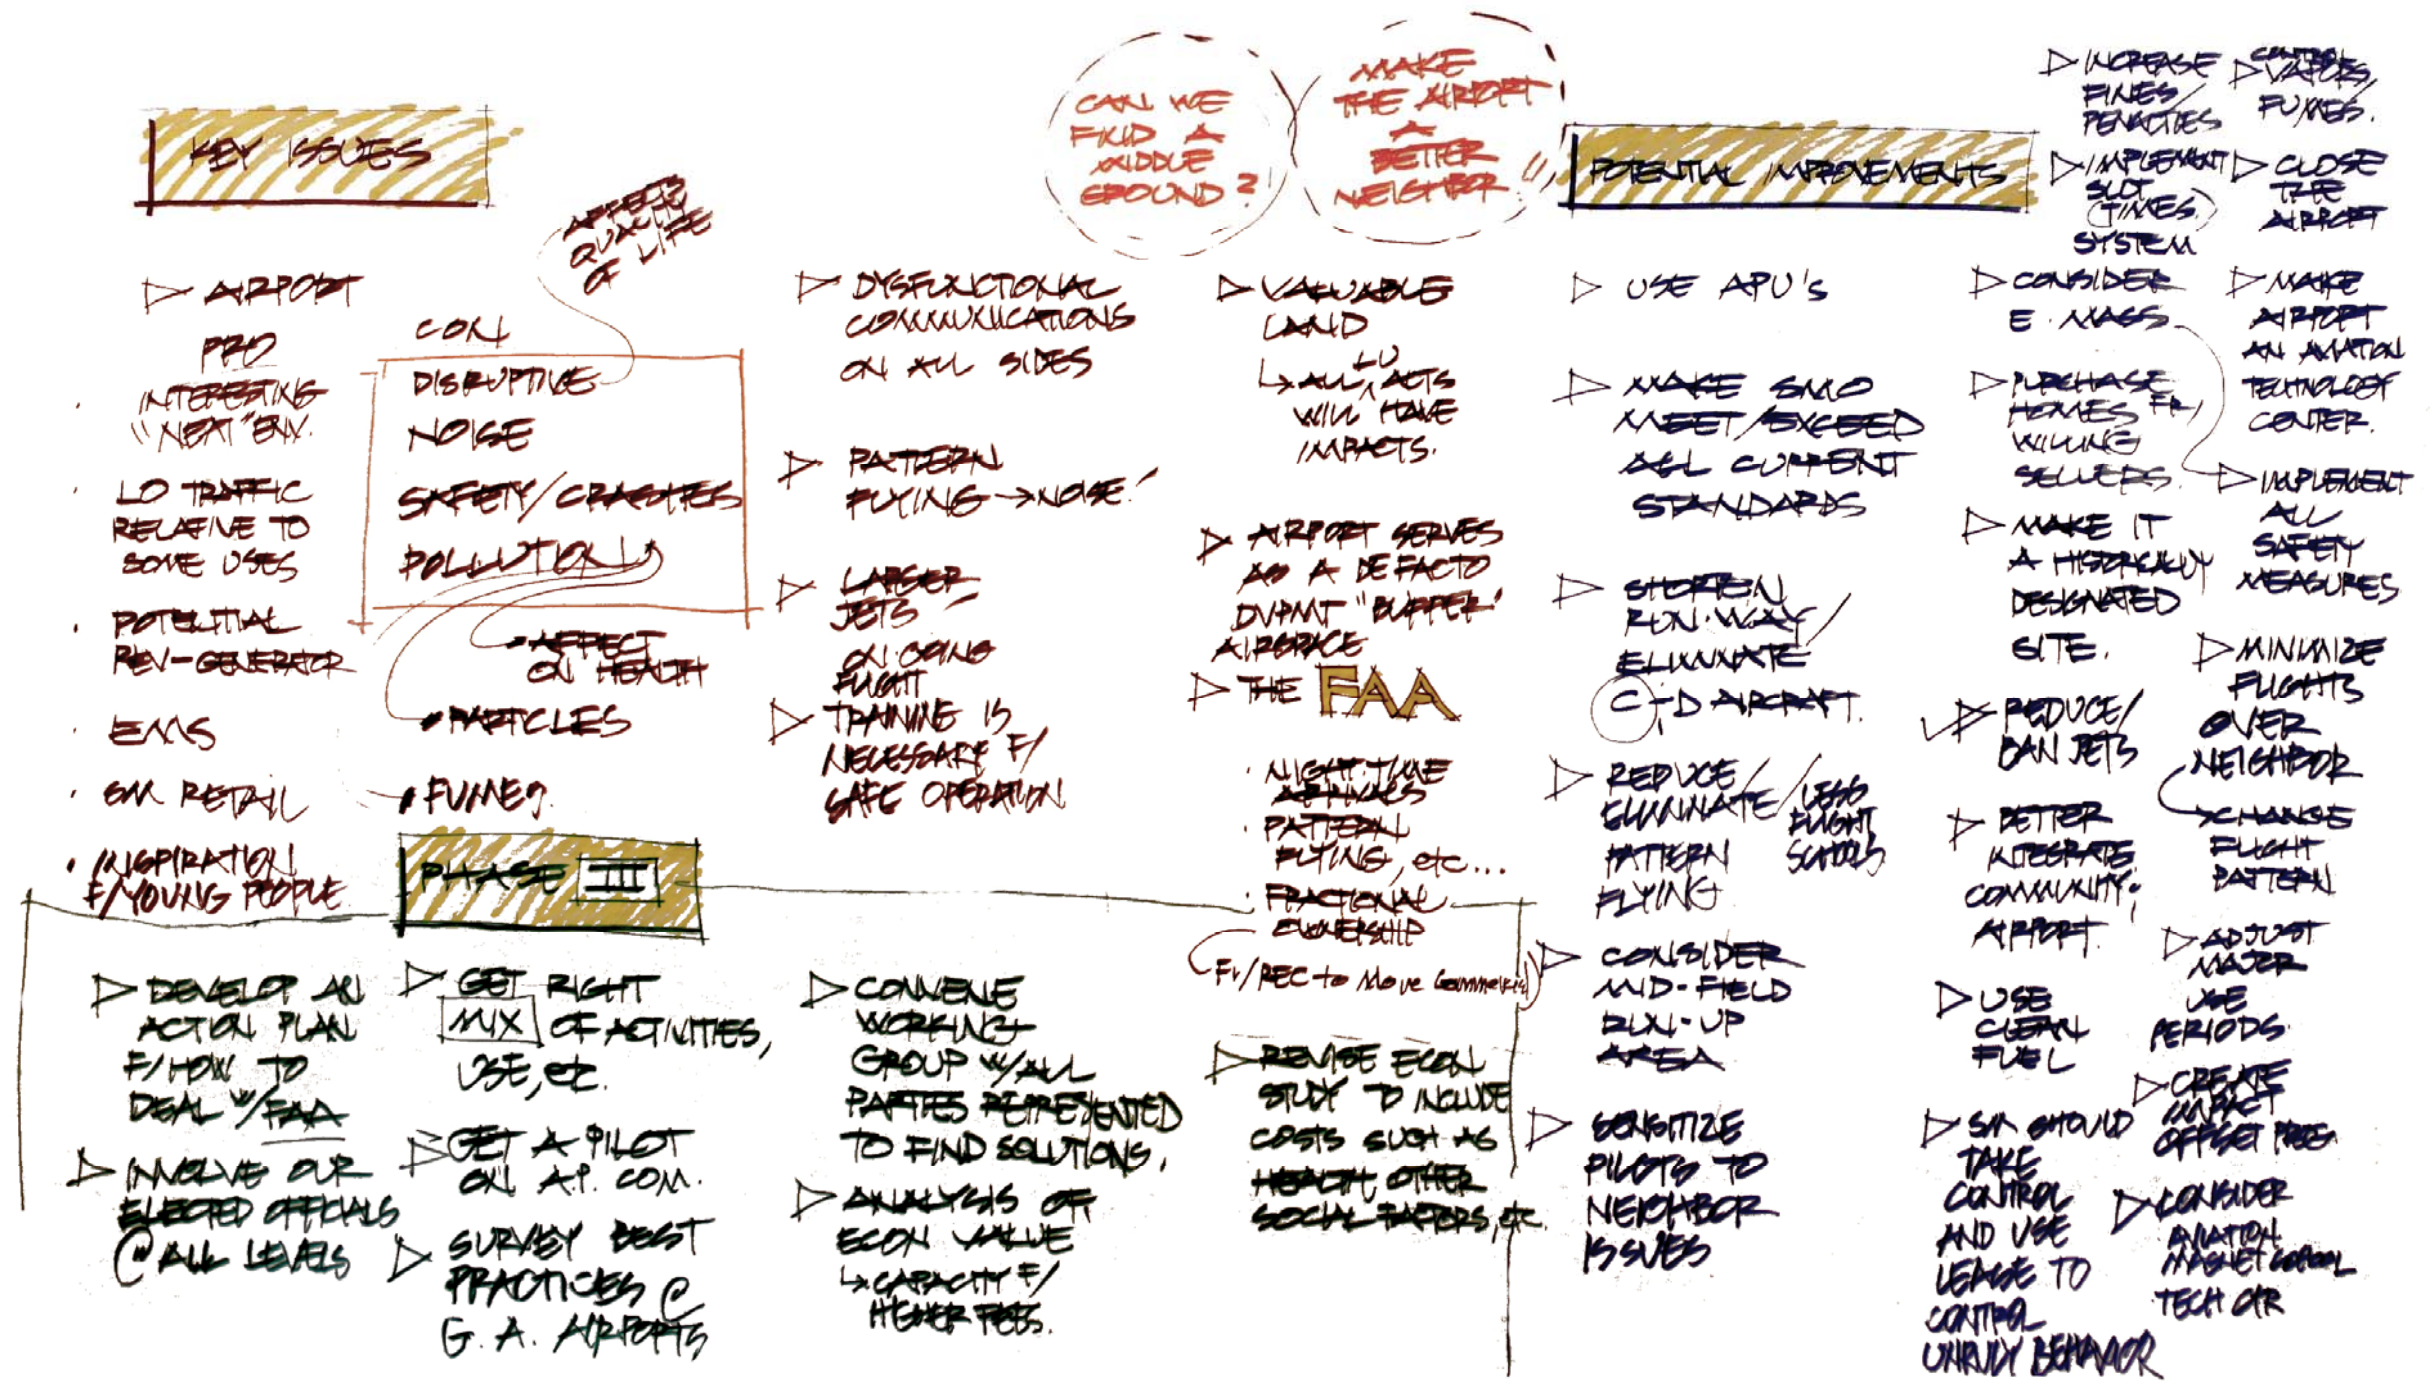 KEY ISSUES
AFFECTS
QUALITY
OF LIFE
▷ AIRPORT
PRO
· INTERESTING
"NEXT" ENV.
· LO TRAFFIC
RELATIVE TO
SOME USES
· POTENTIAL
REV-GENERATOR
· EMS
· SM RETAIL
· INSPIRATION
F/YOUNG PEOPLE
CON
DISRUPTIVE
NOISE
SAFETY/CRASHES
POLLUTION
AFFECT
ON HEALTH
PARTICLES
FUMES
▷ DYSFUNCTIONAL
COMMUNICATIONS
ON ALL SIDES
▷ PATTERN
FLYING → NOISE!
▷ LARGER
JETS
▷ ON-GOING
FLIGHT
TRAINING IS
NECESSARY F/
SAFE OPERATION
CAN WE
FIND A
MIDDLE
GROUND?
MAKE
THE AIRPORT
A
BETTER
NEIGHBOR!!
▷ VALUABLE
LAND
↳ ALL LU ACTS
WILL HAVE
IMPACTS.
▷ AIRPORT SERVES
AS A DE FACTO
DVPMT "BUFFER"
AIRSPACE
▷ THE FAA
· NIGHT-TIME
ARRIVALS
· PATTERN
FLYING, etc...
· FRACTIONAL
OWNERSHIP
POTENTIAL IMPROVEMENTS
▷ USE APU's
▷ MAKE SMO
MEET/EXCEED
ALL CURRENT
STANDARDS
▷ SHORTEN
RUN-WAY/
ELIMINATE
C+D AIRCRAFT.
▷ REDUCE/
ELIMINATE
PATTERN
FLYING
/LESS
FLIGHT
SCHOOLS
▷ CONSIDER
MID-FIELD
RUN-UP
AREA
▷ SENSITIZE
PILOTS TO
NEIGHBOR
ISSUES
▷ INCREASE
FINES/
PENALTIES
▷ IMPLEMENT
SLOT
(TIMES)
SYSTEM
▷ CONSIDER
E-MASS
▷ PURCHASE
HOMES FR/
WILLING
SELLERS.
▷ MAKE IT
A HISTORICALLY
DESIGNATED
SITE.
▷ REDUCE/
BAN JETS
▷ BETTER
INTEGRATE
COMMUNITY;
AIRPORT.
▷ USE
CLEAN
FUEL
▷ SM SHOULD
TAKE
CONTROL
AND USE
LEASE TO
CONTROL
UNRULY BEHAVIOR
▷ CONTROL
VAPORS/
FUMES.
▷ CLOSE
THE
AIRPORT
▷ MAKE
AIRPORT
AN AVIATION
TECHNOLOGY
CENTER.
▷ IMPLEMENT
ALL
SAFETY
MEASURES
▷ MINIMIZE
FLIGHTS
OVER
NEIGHBOR
→ CHANGE
FLIGHT
PATTERN
▷ ADJUST
MAJOR
USE
PERIODS.
▷ CREATE
IMPACT
OFFSET FEES.
▷ CONSIDER
AVIATION
MAGNET SCHOOL
TECH CTR
PHASE III
▷ DEVELOP AN
ACTION PLAN
F/HOW TO
DEAL W/FAA
▷ INVOLVE OUR
ELECTED OFFICIALS
@ ALL LEVELS
▷ GET RIGHT
MIX OF ACTIVITIES,
USE, etc.
▷ GET A PILOT
ON A.P. COM.
▷ SURVEY BEST
PRACTICES @
G.A. AIRPORTS
▷ CONVENE
WORKING
GROUP W/ALL
PARTIES REPRESENTED
TO FIND SOLUTIONS.
▷ ANALYSIS OF
ECON VALUE
↳ CAPACITY F/
HIGHER FEES.
REC to Move Commercial
▷ REVISE ECON
STUDY TO INCLUDE
COSTS SUCH AS
HEALTH, OTHER
SOCIAL FACTORS, etc.